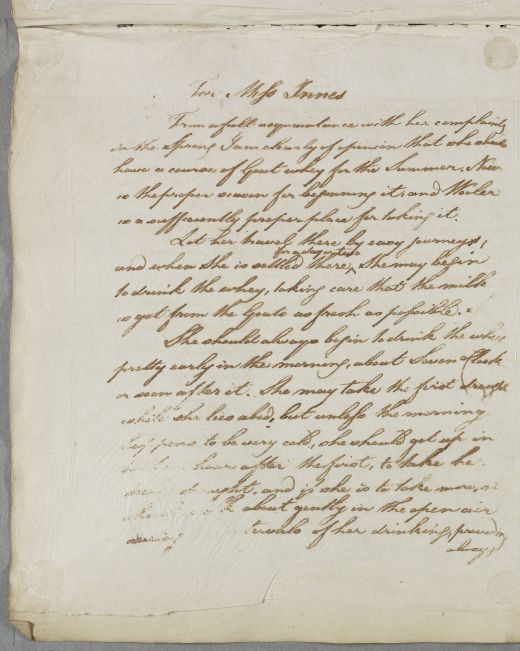 For Miss Innes
From a full acquaintance with her complaints
in the Spring I am clearly of opinion that she should
have a course of Goat whey for the Summer. Now
is the proper season for beginning it, and Wooler
is a sufficiently proper place for taking it.
Let her travel there by easy journeys;
for a day or two
and when She is settled there, She may begin
to drink the whey, taking care that the milk
is got from the Goats as fresh as possible.
She should always begin to drink the whey
pretty early in the morning, about Seven o'Clock
or soon after it. She may take the first draught
while she lies abed, but unless the morning
happens to be very cold, she should get up in
hour after the first, to take her
and if she is to take more,
about gently in the open air
during of her drinking, provided
always